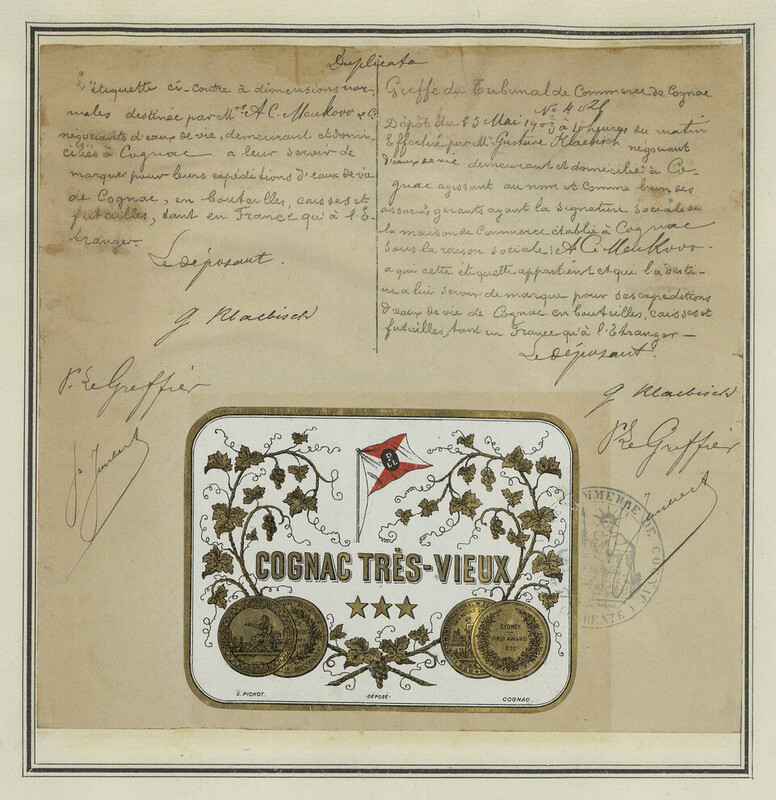 Duplicata
L'étiquette ci-contre à dimensions nor-
males destinée par Mrs A.C. Meukow & Ce
négociants d'eaux de vie, demeurant et domi-
ciliés à Cognac a leur servir de
marque pour leurs expéditions d'eaux de vie
de Cognac, en bouteilles, caisses et
futailles, tant en France qu'à l'E-
tranger.
Le déposant.
G Klaebisch
P. Le Greffier
Greffe du Tribunal de Commerce de Cognac
No 4028
Dépôt du 23 Mai 1903 à 10 heures du matin
Effectué par Mr Gustave Klaebisch négociant
d'eaux de vie demeurant et domicilié à Co-
gnac agissant au nom et comme l'un des
associés gérants ayant la signature sociale de
la maison de Commerce établie à Cognac
sous la raison sociale: A.C. Meukow
a qui cette étiquette appartient et qui l'a desti-
née a lui servir de marque pour ses expéditions
d'eaux de vie de Cognac en bouteilles, caisses et
futailles, tant en France qu'à l'Etranger —
Le déposant.
G Klaebisch
P. Le Greffier
COGNAC TRÈS-VIEUX
SYDNEY
FIRST AWARD
ETC
E. PICHOT.
DÉPOSÉ
COGNAC.
COMMERCE DE COGNAC